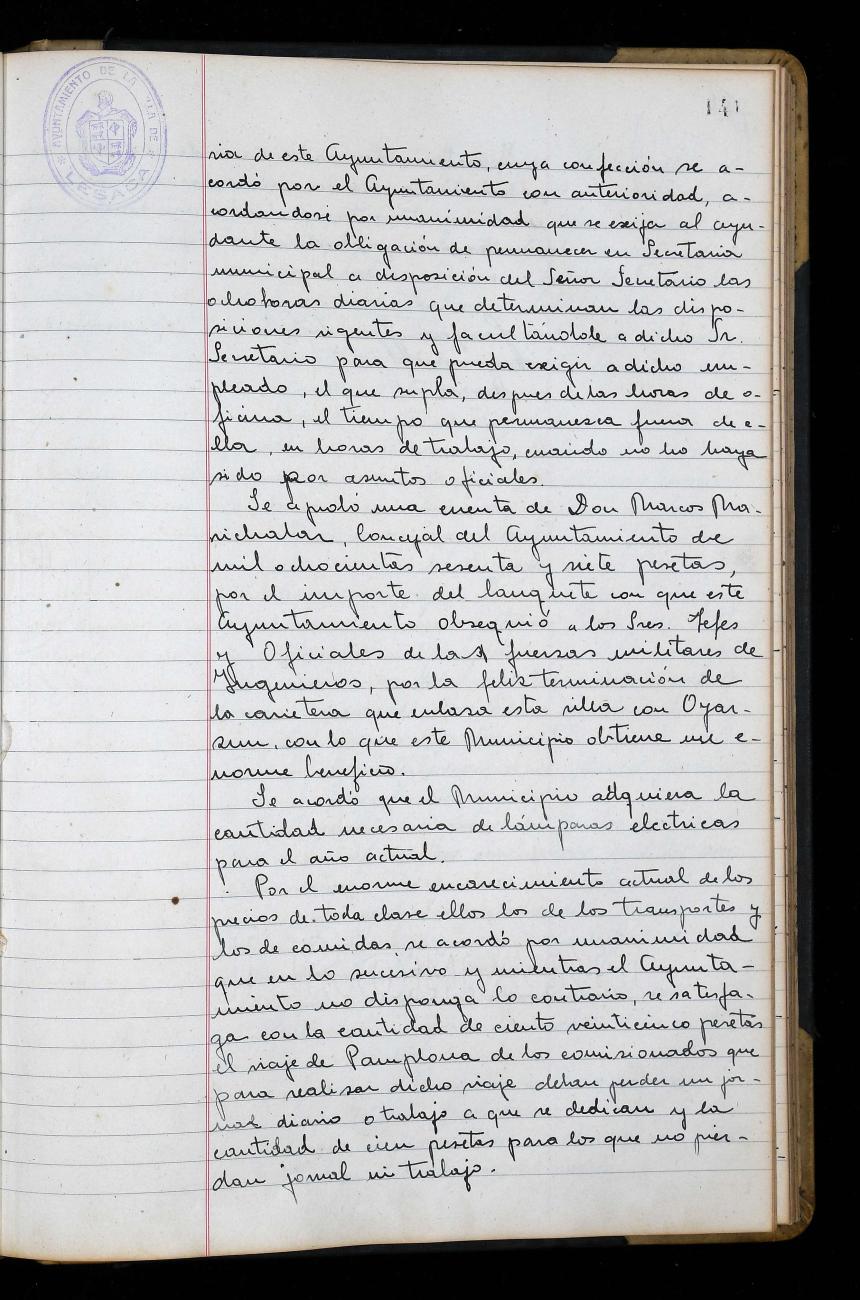 141
AYUNTAMIENTO DE LA VILLA DE
LESACA
ria de este Ayuntamiento, cuya confección se a-
cordó por el Ayuntamiento con anterioridad, a-
cordandose por unanimidad que se exija al ayu-
dante la obligación de permanecer en Secretaria
municipal a disposición del Señor Secretario las
ocho horas diarias que determinan las dispo-
siciones vigentes y facultándole a dicho Sr.
Secretario para que pueda exigir a dicho em-
pleado, el que supla, despues de las horas de o-
ficina, el tiempo que permanesca fuera de e-
lla, en horas de trabajo, cuando no lo haya
sido por asuntos oficiales.
Se aprobó una cuenta de Don Marcos Ma-
richalar, Concejal del Ayuntamiento de
mil ochocientas sesenta y siete pesetas,
por el importe del banquete con que este
Ayuntamiento obsequió a los Sres. Jefes
y Oficiales de las fuersas militares de
Ingenieros, por la felis terminación de
la carretera que enlasa esta villa con Oyar-
sun, con lo que este Municipio obtiene un e-
norme beneficio.
Se acordó que el Municipio adquiera la
cantidad necesaria de lámparas electricas
para el año actual.
Por el enorme encarecimiento actual de los
precios de toda clase ellos los de los transportes y
los de comidas, se acordó por unanimidad
que en lo sucesivo y mientras el Ayunta-
miento no disponga lo contrario, se satisfa-
ga con la cantidad de ciento veinticinco pesetas
el viaje de Pamplona de los comisionados que
para realisar dicho viaje deban perder un jor-
nal diario o trabajo a que se dedican y la
cantidad de cien pesetas para los que no pier-
dan jornal ni trabajo.